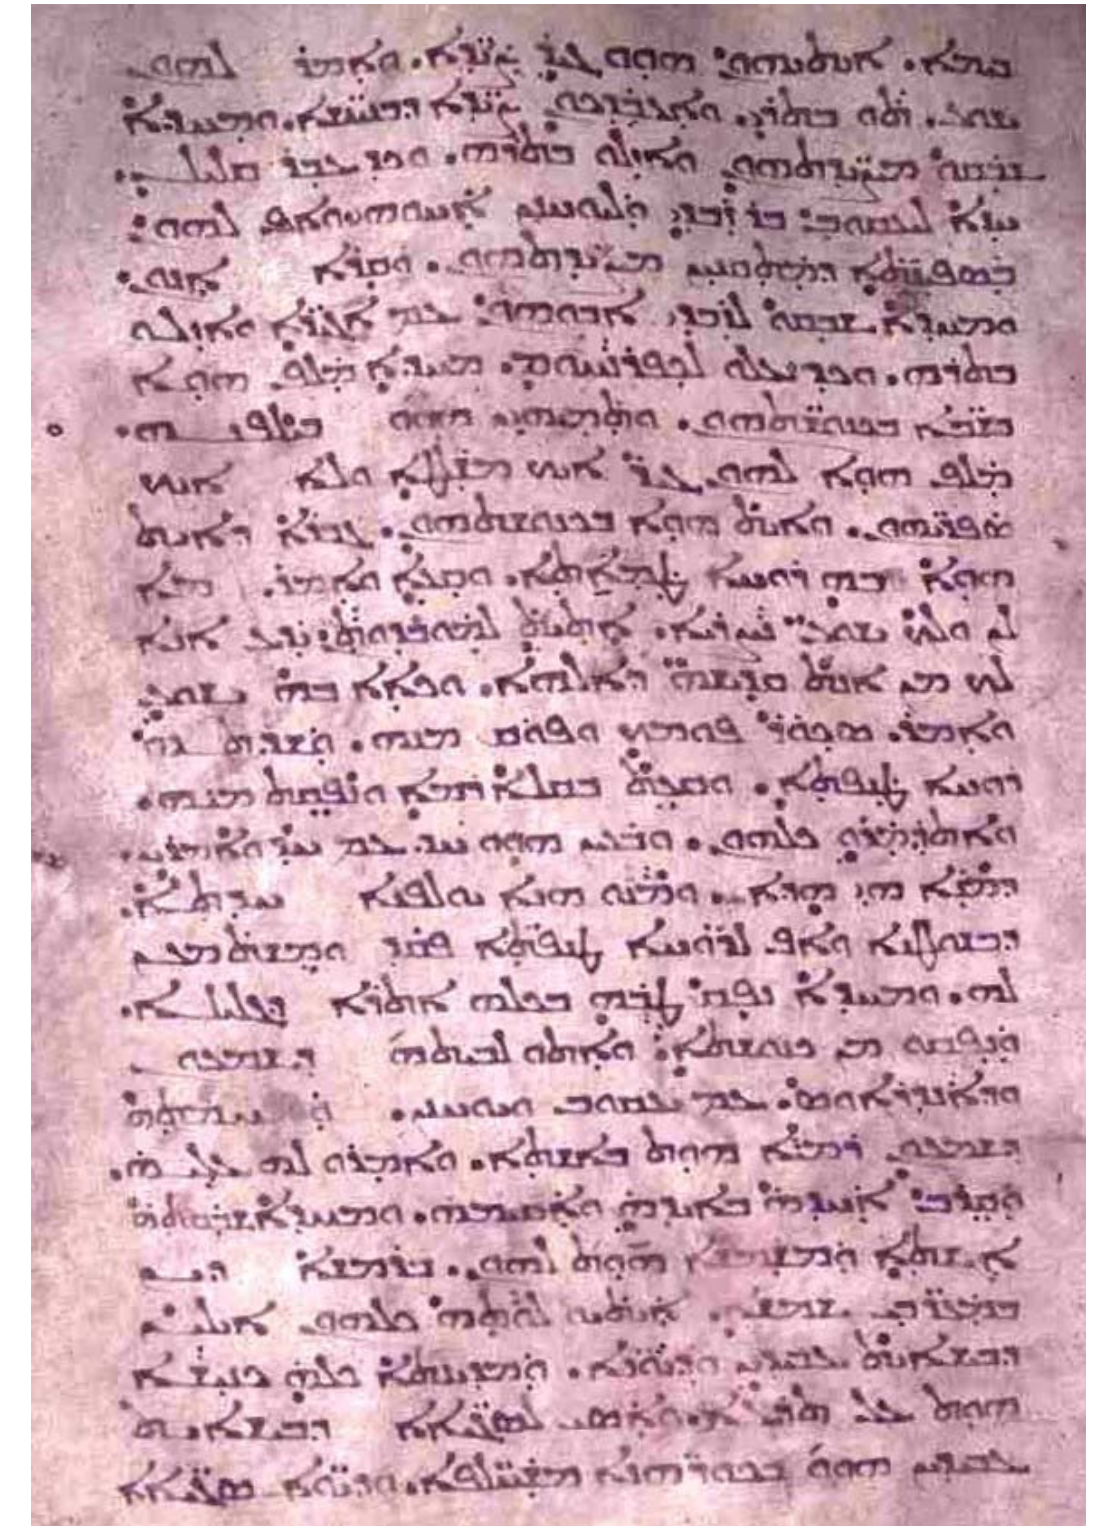 ܒܝܡܐ. ܐܝܬܝܗܘܢ ܗܘܘ ܓܝܪ ܨܝܕܐ. ܘܐܡܪ ܠܗܘܢ
ܝܫܘܥ. ܬܘ ܒܬܪܝ. ܘܐܥܒܕܟܘܢ ܨܝܕܐ ܕܒܢܝܢܫܐ. ܘܡܚܕܐ
ܫܒܩܘ ܡܨܝܕܬܗܘܢ ܘܐܙܠܘ ܒܬܪܗ. ܘܟܕ ܥܒܪ ܩܠܝܠ.
ܚܙܐ ܠܝܥܩܘܒ ܒܪ ܙܒܕܝ ܘܠܝܘܚܢܢ ܐܚܘܗܝ ܘܐܦ ܠܗܘܢ
ܒܣܦܝܢܬܐ ܕܡܬܩܢܝܢ ܡܨܝܕܬܗܘܢ. ܘܩܪܐ ܐܢܘܢ.
ܘܡܚܕܐ ܫܒܩܘ ܠܙܒܕܝ ܐܒܘܗܘܢ ܥܡ ܐܓܝܪܐ ܘܐܙܠܘ
ܒܬܪܗ. ܘܟܕ ܥܠܘ ܠܟܦܪܢܚܘܡ. ܡܚܕܐ ܡܠܦ ܗܘܐ
ܒܫܒܐ ܒܟܢܘܫܬܗܘܢ. ܘܬܡܝܗܝܢ ܗܘܘ ܒܝܘܠܦܢܗ.
ܡܠܦ ܗܘܐ ܠܗܘܢ ܓܝܪ ܐܝܟ ܡܫܠܛܐ ܘܠܐ ܐܝܟ
ܣܦܪܝܗܘܢ. ܘܐܝܬ ܗܘܐ ܒܟܢܘܫܬܗܘܢ. ܓܒܪܐ ܕܐܝܬ
ܗܘܐ ܒܗ ܪܘܚܐ ܛܡܐܬܐ. ܘܩܥܐ ܘܐܡܪ. ܡܐ
ܠܢ ܘܠܟ ܝܫܘܥ ܢܨܪܝܐ. ܐܬܝܬ ܠܡܘܒܕܘܬܢ ܝܕܥ ܐܢܐ
ܠܟ ܡܢ ܐܢܬ ܩܕܝܫܗ ܕܐܠܗܐ. ܘܟܐܐ ܒܗ ܝܫܘܥ
ܘܐܡܪ. ܣܟܘܪ ܦܘܡܟ ܘܦܘܩ ܡܢܗ. ܘܫܕܬܗ
ܪܘܚܐ ܛܢܦܬܐ. ܘܩܥܬ ܒܩܠܐ ܪܡܐ ܘܢܦܩܬ ܡܢܗ.
ܘܐܬܕܡܪܘ ܟܠܗܘܢ. ܘܒܥܝܢ ܗܘܘ ܚܕ ܥܡ ܚܕ ܘܐܡܪܝܢ.
ܕܡܢܐ ܗܝ ܗܕܐ. ܘܡܢܘ ܗܢܐ ܝܘܠܦܢܐ ܚܕܬܐ.
ܕܒܫܘܠܛܢܐ ܘܐܦ ܠܪܘܚܐ ܛܢܦܬܐ ܦܩܕ ܘܡܫܬܡܥܢ
ܠܗ. ܘܡܚܕܐ ܢܦܩ ܛܒܗ ܒܟܠܗ ܐܬܪܐ ܕܓܠܝܠܐ.
ܘܢܦܩܘ ܡܢ ܟܢܘܫܬܐ ܘܐܬܘ ܠܒܝܬܗ ܕܫܡܥܘܢ
ܘܕܐܢܕܪܐܘܣ. ܥܡ ܝܥܩܘܒ ܘܝܘܚܢܢ. ܘܚܡܬܗ
ܕܫܡܥܘܢ ܪܡܝܐ ܗܘܬ ܒܐܫܬܐ. ܘܐܡܪܘ ܠܗ ܥܠܝܗ.
ܘܩܪܒ ܐܚܕܗ ܒܐܝܕܗ ܘܐܩܝܡܗ. ܘܡܚܕܐ ܫܒܩܬܗ
ܐܫܬܐ ܘܡܫܡܫܐ ܗܘܬ ܠܗܘܢ. ܒܪܡܫܐ ܕܝܢ
ܒܡܥܪܒܝ ܫܡܫܐ. ܐܝܬܝܘ ܠܘܬܗ ܟܠܗܘܢ ܐܝܠܝܢ
ܕܒܝܫܐܝܬ ܥܒܝܕܝܢ ܘܕܝܘܢܐ. ܘܡܕܝܢܬܐ ܟܠܗ ܟܢܝܫܐ
ܗܘܬ ܥܠ ܬܪܥܐ. ܘܐܣܝ ܠܣܓܝܐܐ ܕܒܝܫܐܝܬ
ܥܒܝܕܝܢ ܗܘܘ ܒܟܘܪܗܢܐ ܡܫܚܠܦܐ. ܘܕܝܘܐ ܣܓܝܐܐ